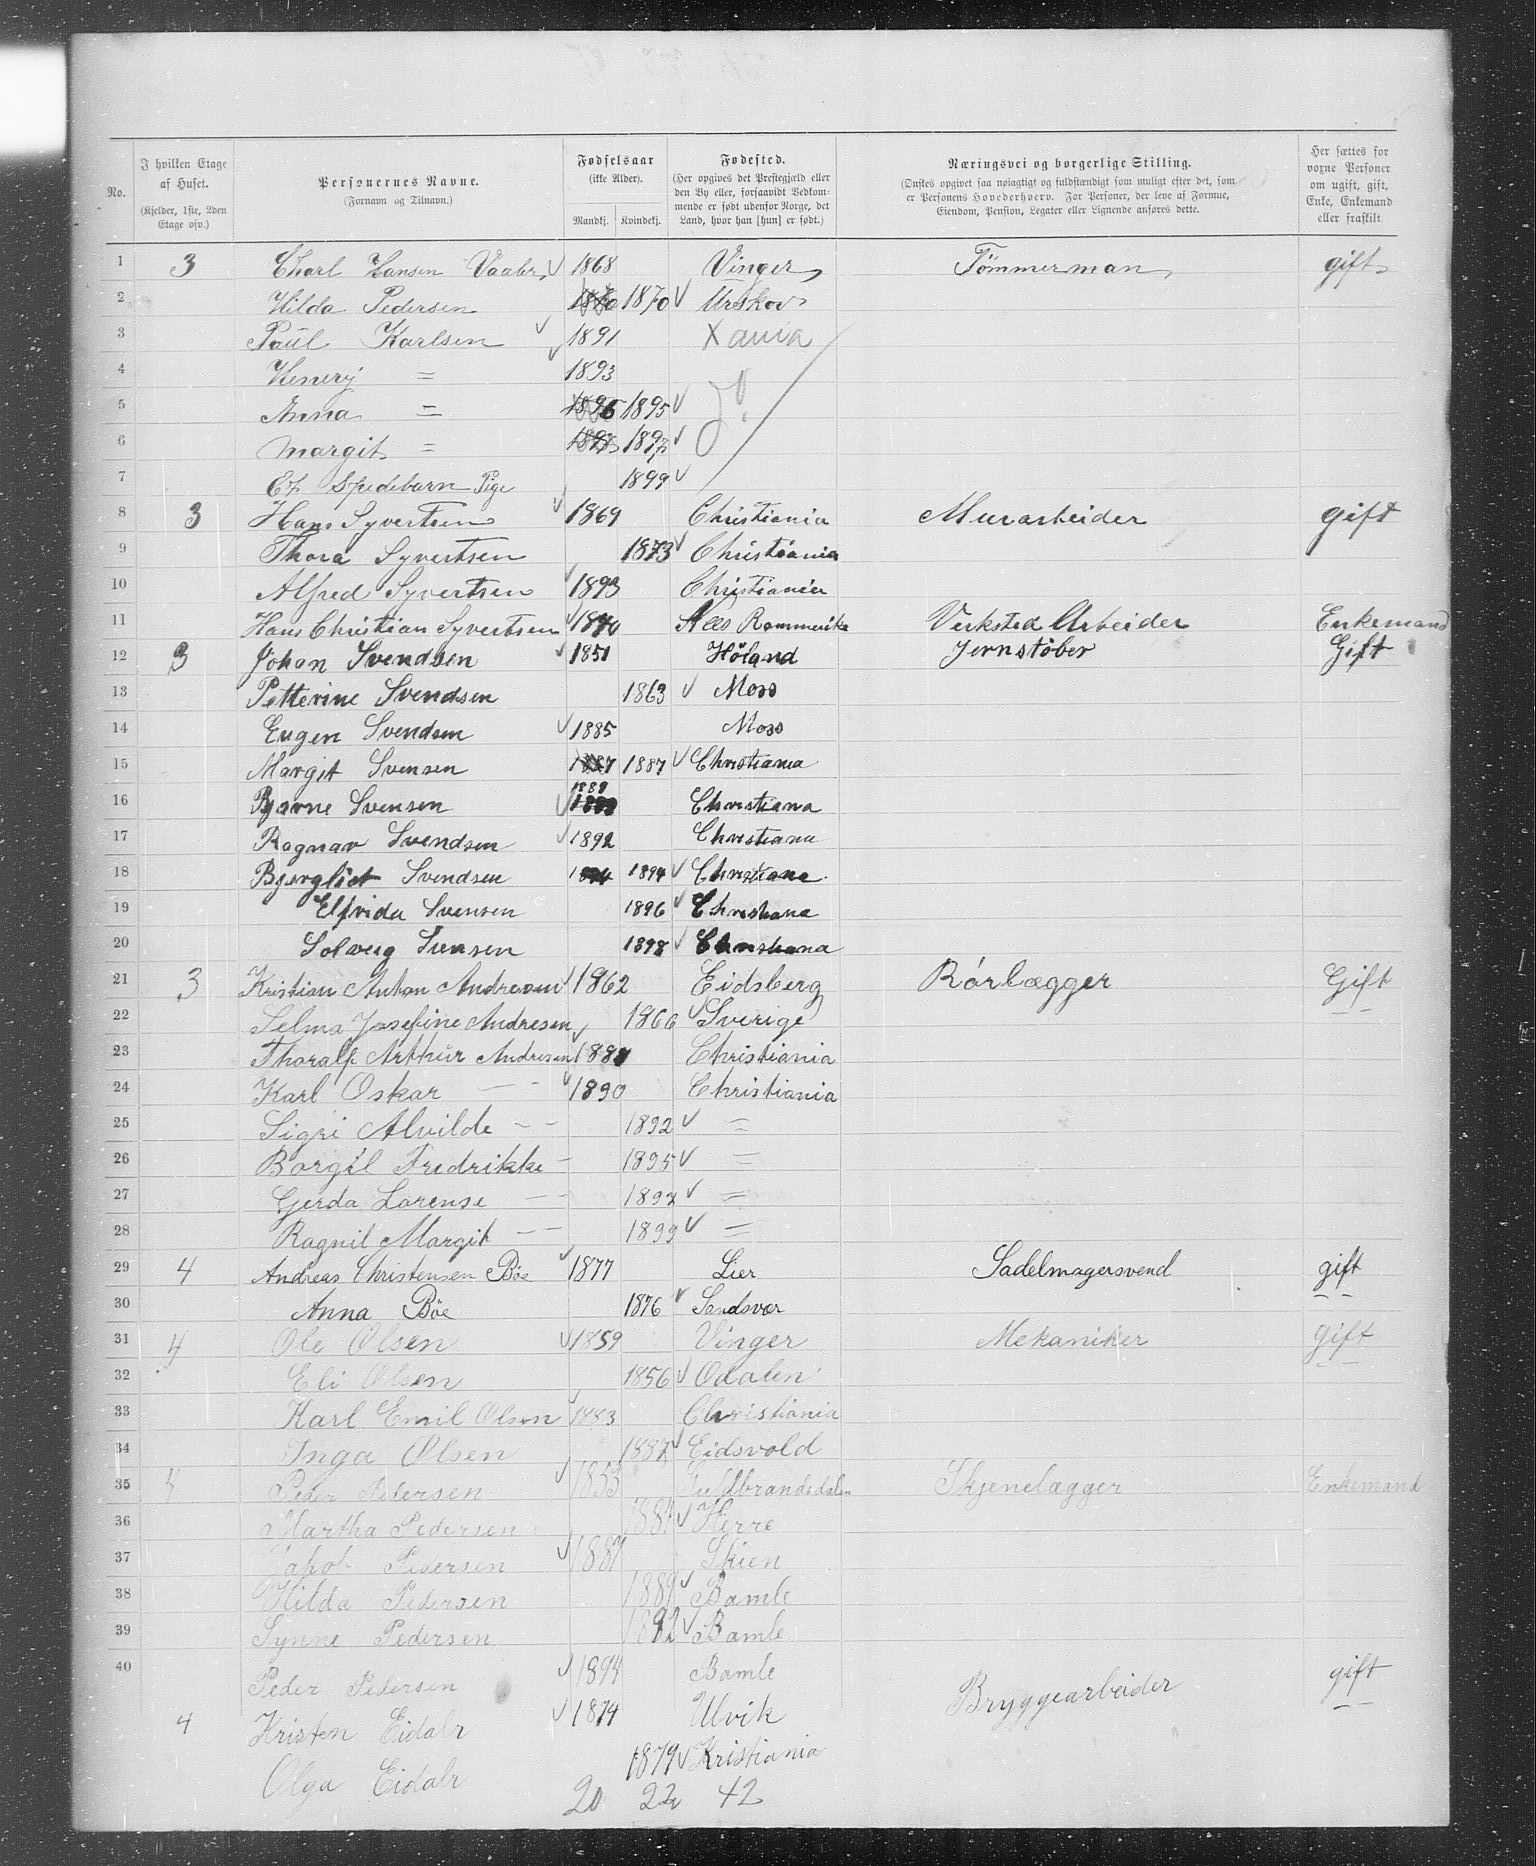 No. | I hvilken Etage af Huset. (Kjelder, 1ste, 2den Etage osv.) | Personernes Navne. (Fornavn og Tilnavn.) | Fødselsaar (ikke Alder). Mandkj. | Kvindekj. | Fødested. (Her opgives det Prestegjæld eller den By eller, forsaavidt Vedkommende er født udenfor Norge, det Land, hvor han [hun] er født.) | Næringsvei og borgerlige Stilling. (Ønskes opgivet saa nøiagtigt og fuldstændigt som muligt efter det, som er Personens Hovederhverv. For Personer, der leve af Formue, Eiendom, Pension, Legater eller Lignende anføres dette. | Her sættes for voxne Personer om ugift, gift, Enke, Enkemand eller fraskilt.
1 3 Charl Hansen Vaaler 1868 Vinger Tömmerman gift
2 Hilda Pedersen 1870 1870 Urskov
3 Paul Karlsen 1891 Xania
4 Henerÿ = 1893
5 Anna = 1895 1895
6 Margit = 1897 1897
7 Et Spedebarn Pige 1899
8 3 Hans Syvertsen 1869 Christiania Murarbeider gift
9 Thora Syvertsen 1873 Christiania
10 Alfred Syvertsen 1893 Christiania
11 Hans Christian Syvertsen 1840 Nes Rommerike Verksted Arbeider Enkemand
12 3 Johan Svendsen 1851 Höland Jernstöber Gift
13 Petterine Svendsen 1863 Moss
14 Eugen Svendsen 1885 Moss
15 Margit Svensen 1887 1887 Christiania
16 Bjarne Svensen 1889 Christiana
17 Ragnar Svendsen 1892 Christiana
18 Bjergliot Svendsen 1894 1894 Christiana
19 Elfrida Svensen 1896 Christiana
20 Solveig Svensen 1898 Christiana
21 3 Kristian Anton Andresen 1862 Eidsberg Rørlægger Gift
22 Selma Josefine Andresen 1866 Sverige
23 Thoralf Arthur Andresen 1887 Christiania
24 Karl Oskar — - 1890 Christiania
25 Sigri Alvilde - - 1892 =
26 Borgil Fredrikke - 1895 =
27 Gerda Lorense — - 1897 =
28 Ragnil Margit — - 1899 =
29 4 Andreas Christensen Böe 1877 Lier Sadelmagersvend gift
30 Anna Böe 1876 Sandsvær
31 4 Ole Olsen 1859 Vinger Mekaniker gift
32 Eli Olsen 1856 Odalen
33 Karl Emil Olsen 1883 Christiania
34 Inga Olsen 1887 Eidsvold
35 4 Peder Pedersen 1853 Guldbrandsdalen Skjenelægger Enkemand
36 Martha Pedersen 1884 Herre
37 Jakob Pedersen 1887 Skien
38 Hilda Pedersen 1889 Bamle
39 Synne Pedersen 1892 Bamle
40 Peder Pedersen 1894 Bamle
4 Kristen Eidalr 1874 Ulvik Bryggearbeider gift
Olga Eidalr 1879 Kristiania
20 22 42